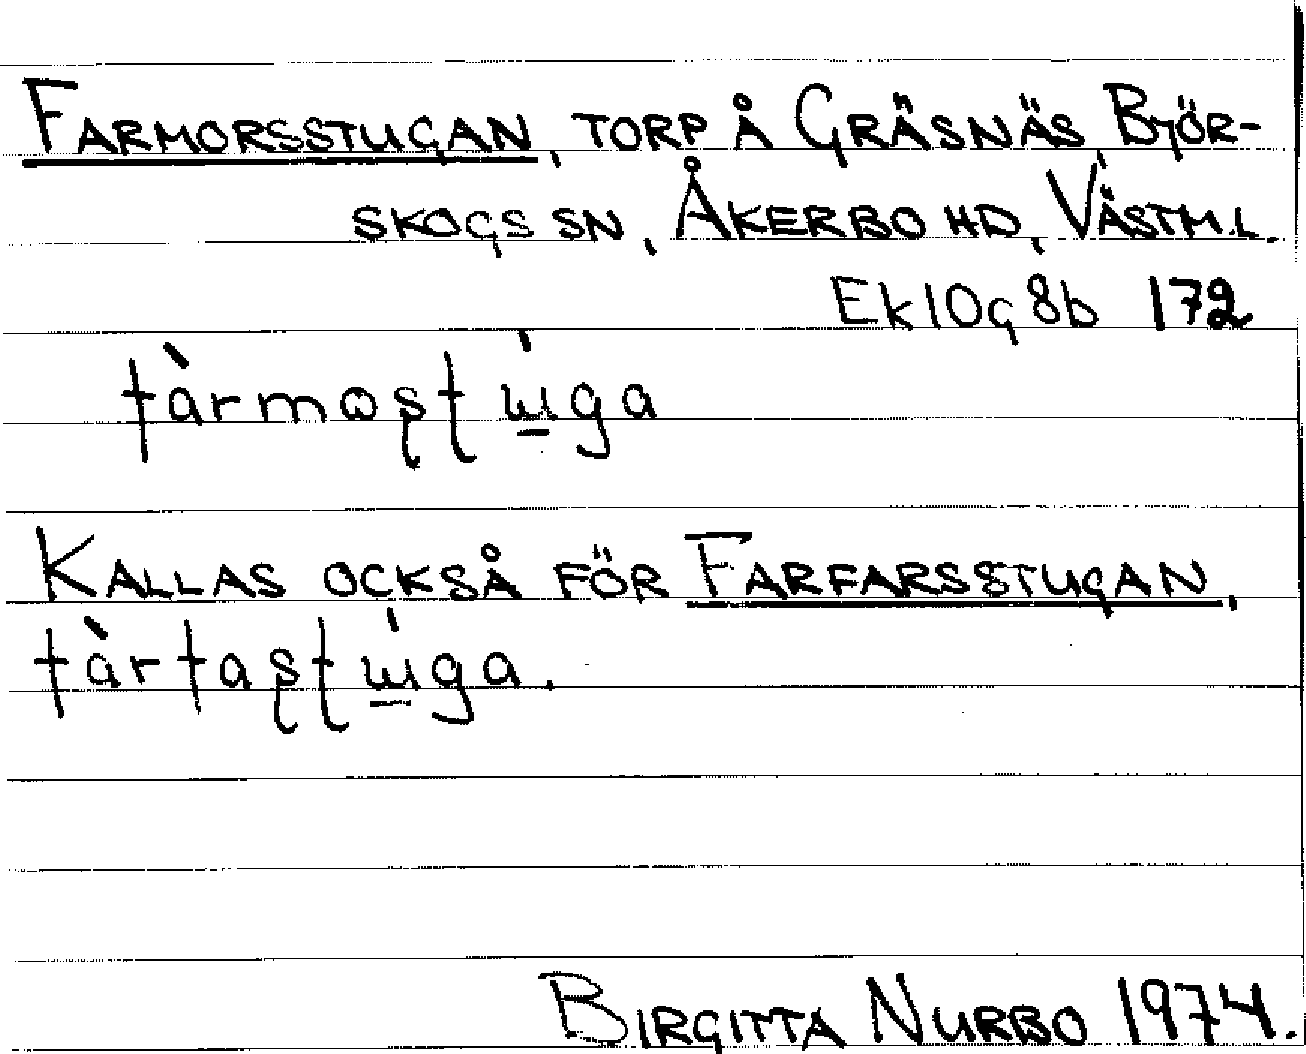 FARMORSSTUGAN, TORP Å GRÄSNÄS, BJÖR-
SKOGS SN, ÅKERBO HD, VÄSTM.L.
Ek 10g8b 172
fàrmosṭɯ́ga
KALLAS OCKSÅ FÖR FARFARSSTUGAN,
fàrfasṭɯ́ga.
BIRGITTA NURBO 1974.